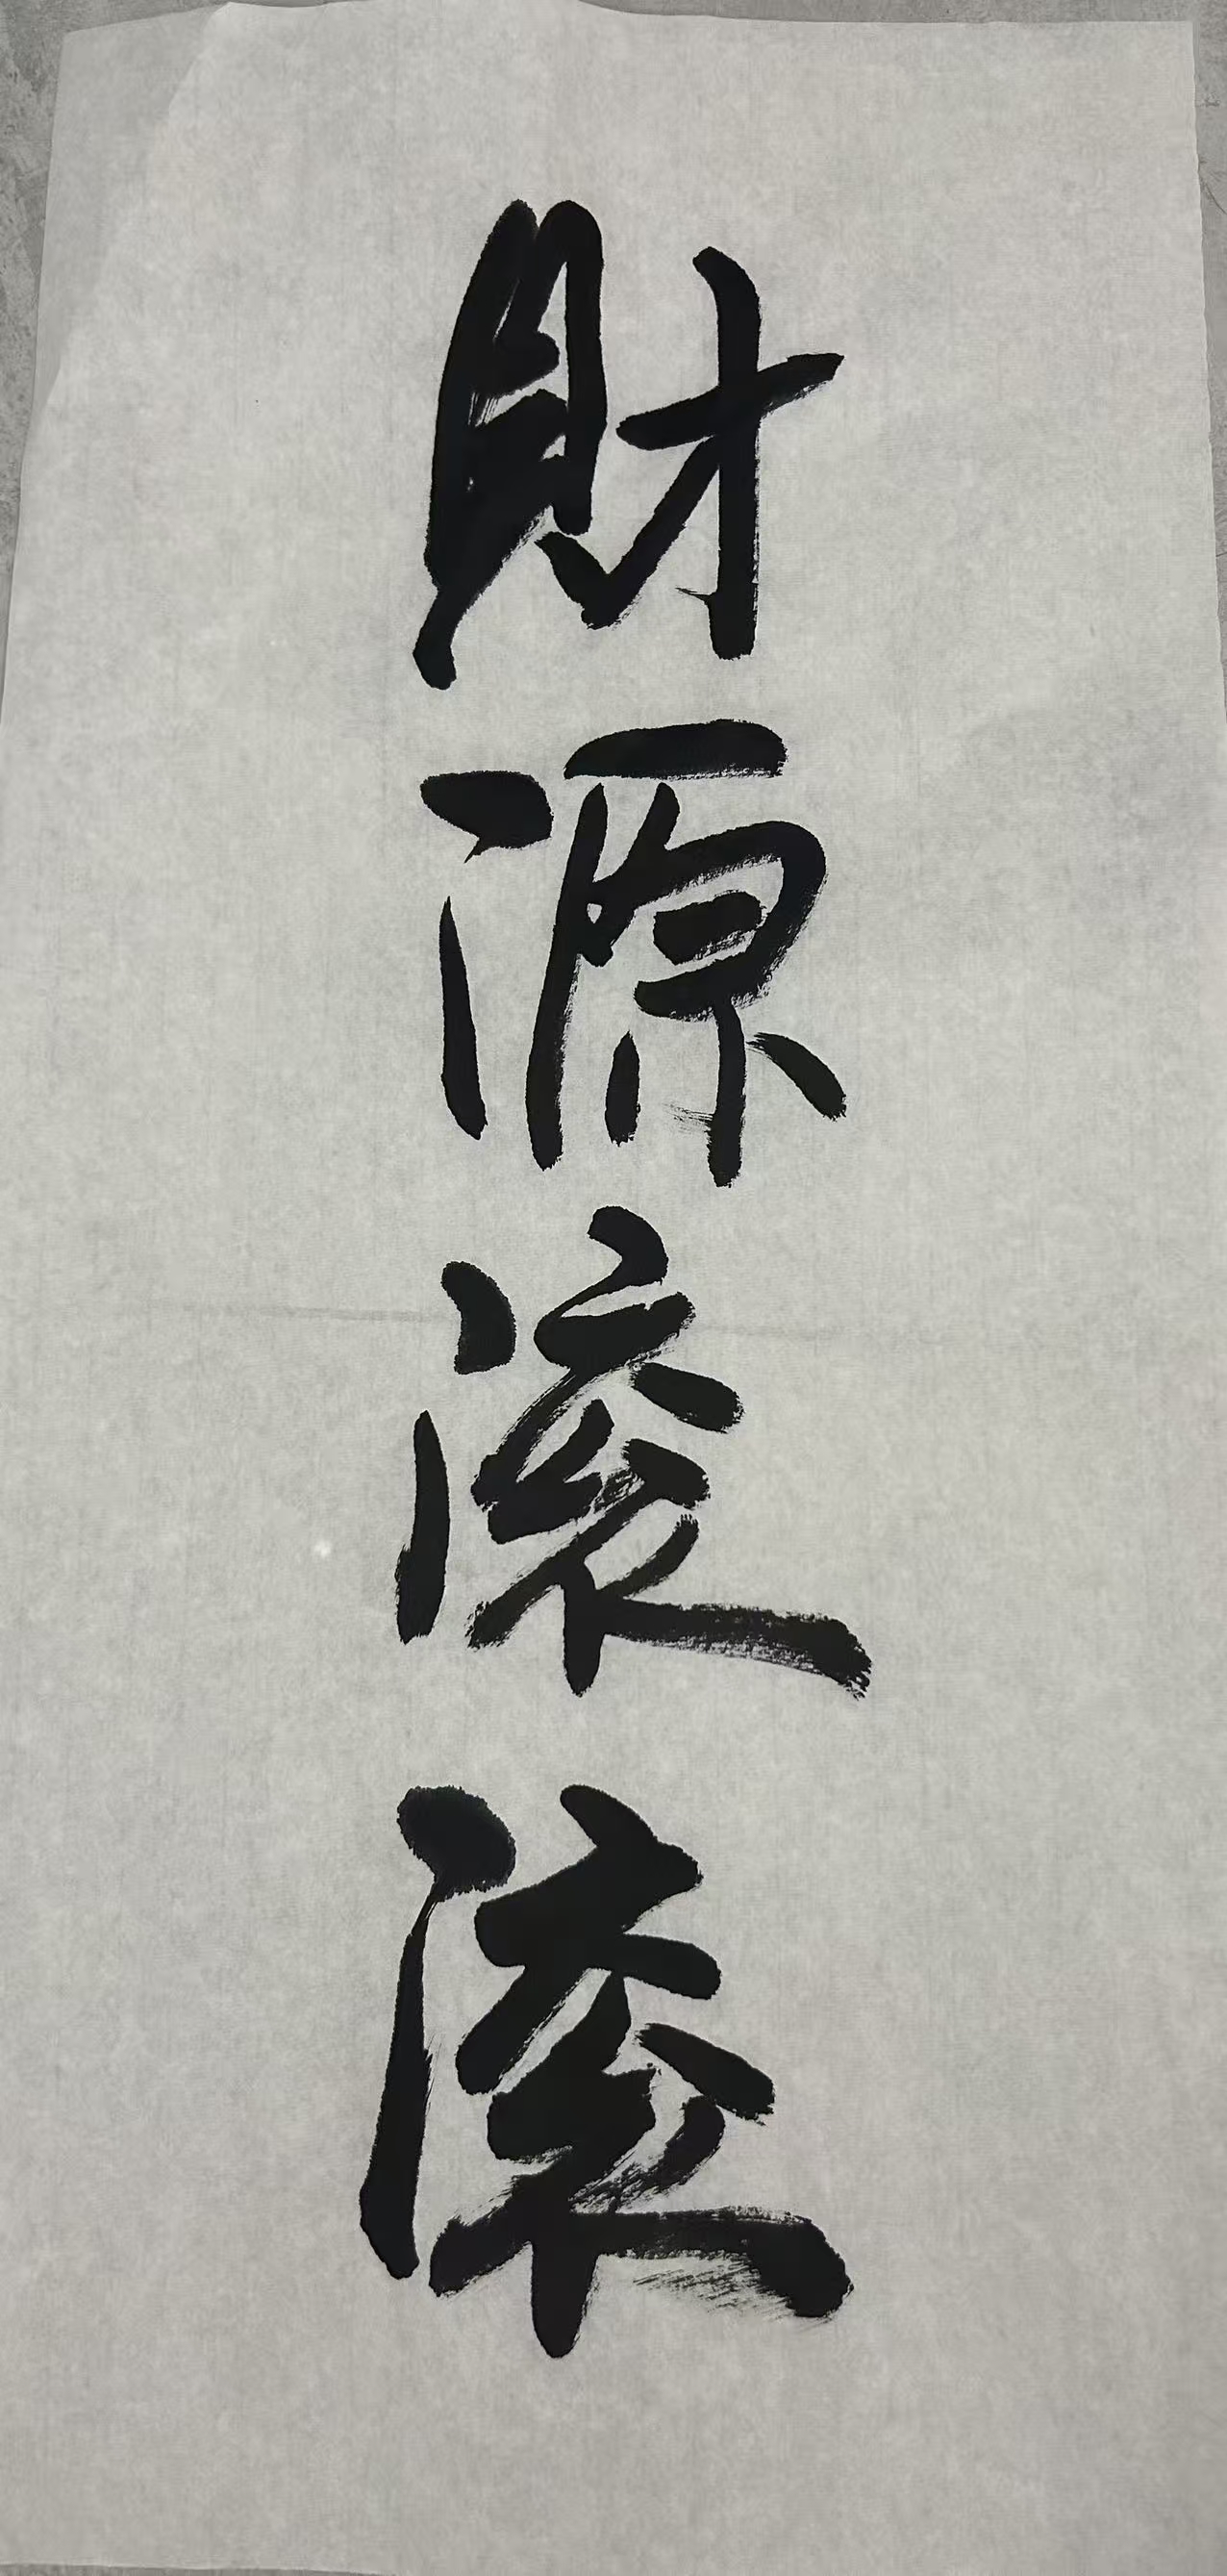 財源滚滚